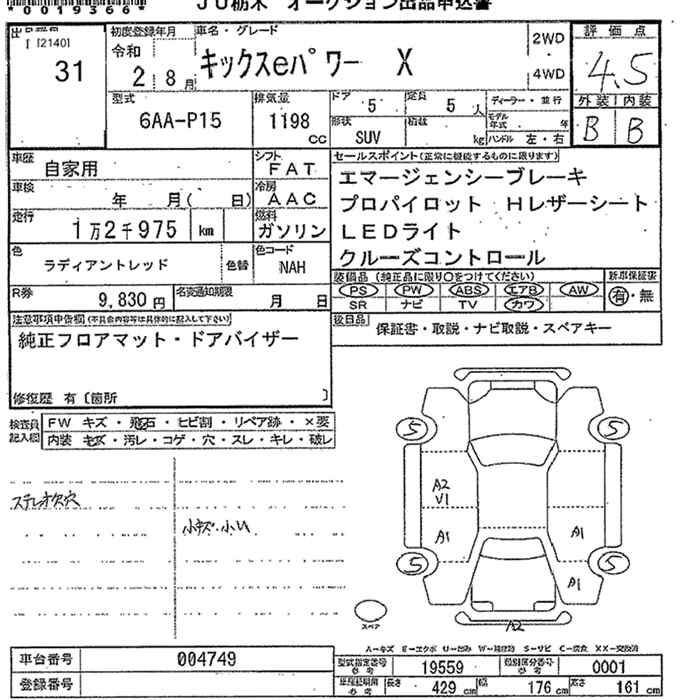 *0019366*
JU栃木 オークション出品申込書
[ [2140]
31
初度登録年月
令和 2 8月
車名・グレード
キックスeパワー X
2WD
4WD
評価点
4.5
型式
6AA-P15
排気量
1198 cc
ドア 5
定員 5 人
形状 SUV
積載 kg
ディーラー・並行
モデル年式 年
ハンドル 左・右
外装 内装
B B
車歴 自家用
シフト FAT
車検 年 月( 日)
冷房 AAC
走行 1万2千975 km
燃料 ガソリン
色 ラディアントレッド 色替
色コード NAH
R券 9,830 円
名変通知期限 月 日
セールスポイント(正常に機能するものに限ります)
エマージェンシーブレーキ
プロパイロット Hレザーシート
LEDライト
クルーズコントロール
装備品 (純正品に限り〇をつけてください)
新車保証書
PS PW ABS エアB AW
SR ナビ TV カワ
有・無
後日品 保証書・取説・ナビ取説・スペアキー
注意事項申告欄(不具合内容等は具体的に記入して下さい)
純正フロアマット・ドアバイザー
修復歴 有〔箇所 〕
検査員記入欄
FW キズ・飛石・ヒビ割・リペア跡・×要
内装 キズ・汚レ・コゲ・穴・スレ・キレ・破レ
5 5
A2
V1
A1 A1
5 5
A1
A2
小キズ・小凹
スペア
車台番号 004749
登録番号
A-キズ E-エクボ U-凹み W-補修跡 S-サビ C-腐食 XX-交換済
型式指定番号 参考 19559
類別区分番号 参考 0001
車検証期間 参考 長さ 429 cm 幅 176 cm 高さ 161 cm